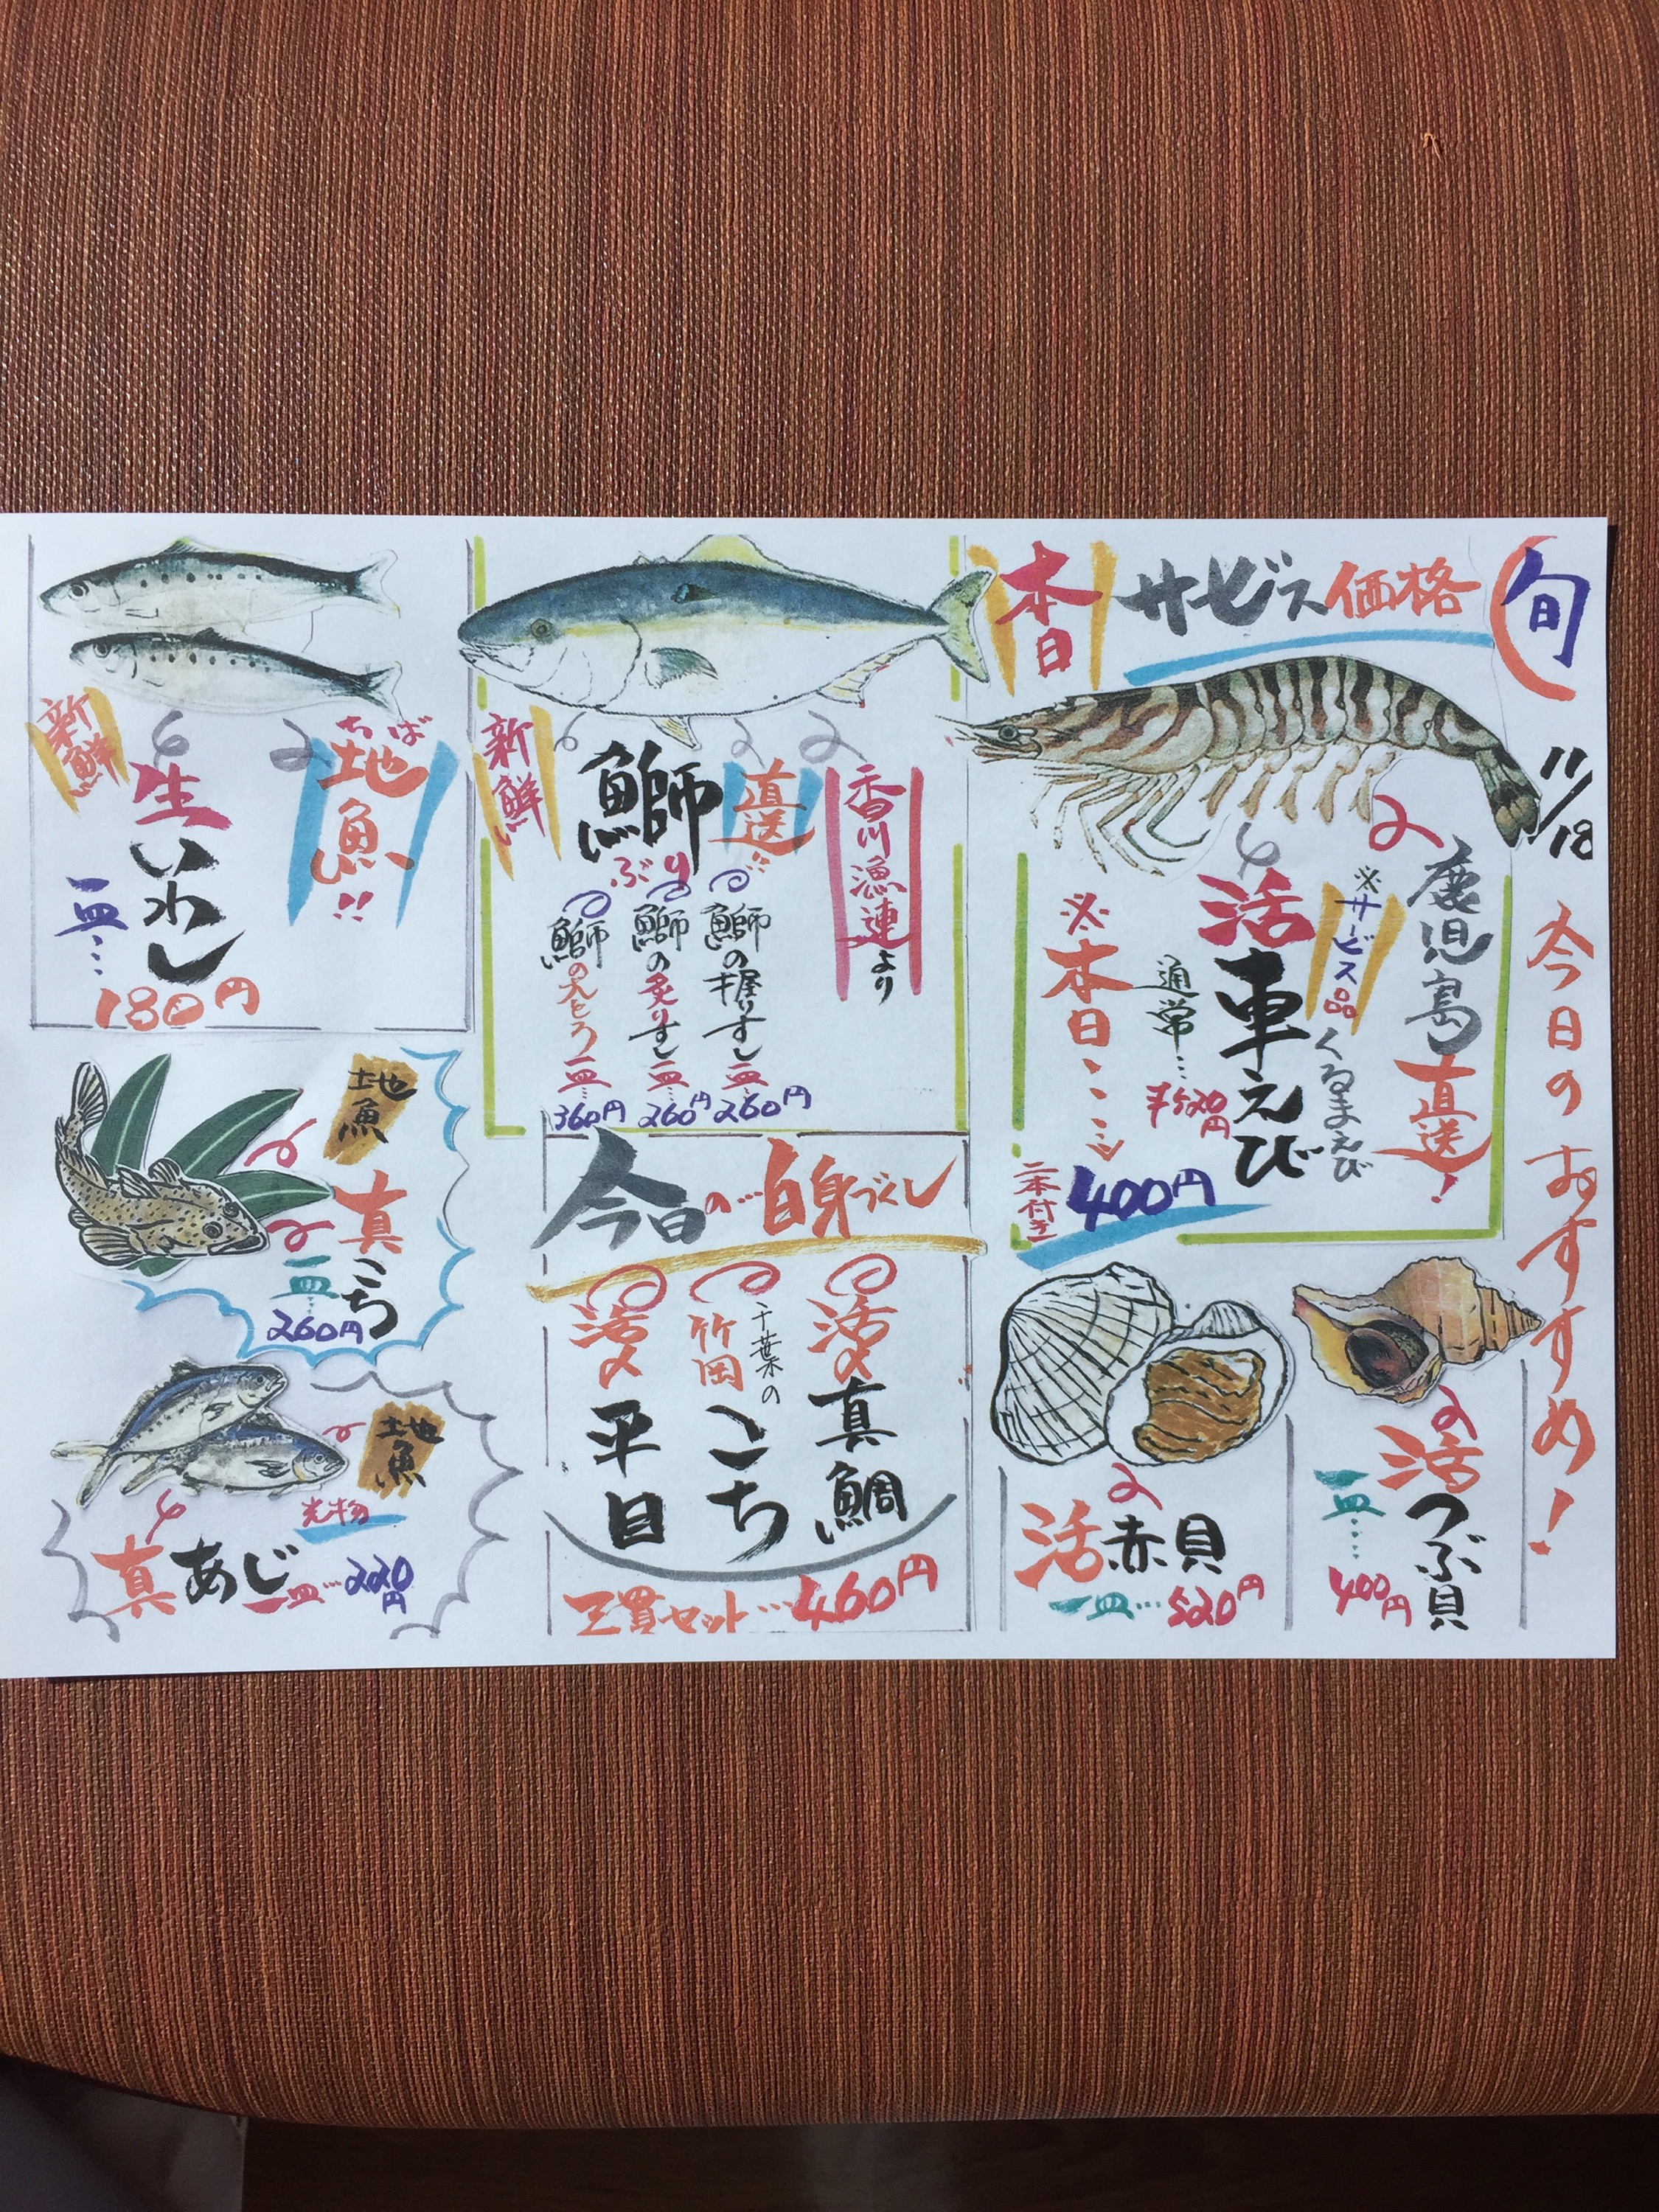 旬
11/18
今日のおすすめ!
本日
サービス価格
鹿児島
直送!
※サービス品
くるまえび
活
車えび
通常…
520円
※本日…
二本付き
400円
活
つぶ貝
一皿…
400円
活赤貝
一皿…520円
香川漁連より
直送!!
鰤
ぶり
新鮮
鰤の握りすし
一皿…
260円
鰤の炙りすし
一皿…
260円
鰤の大とろ
一皿…
360円
今日の…白身づくし
活〆
真鯛
千葉の
竹岡
こち
活〆
平目
三貫セット…460円
ちば
地魚!!
生いわし
新鮮
一皿…
180円
地魚
真こち
一皿…
260円
地魚
光物
真あじ
一皿…220円